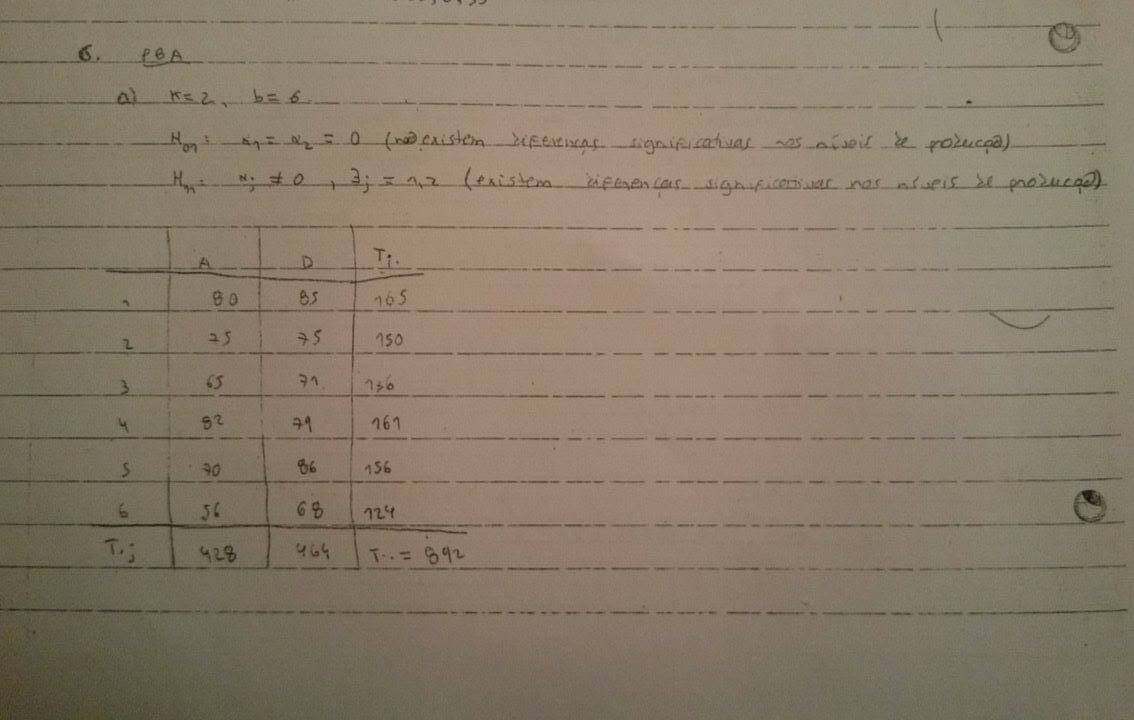 6. PBA
a) K=2, b=6
H01: α1 = α2 = 0 (não existem diferenças significativas nos níveis de produção)
H11: αj ≠ 0, ∃j = 1,2 (existem diferenças significativas nos níveis de produção)
A D Ti.
1 80 85 165
2 75 75 150
3 65 71 136
4 82 79 161
5 70 86 156
6 56 68 124
T.j 428 464 T.. = 892